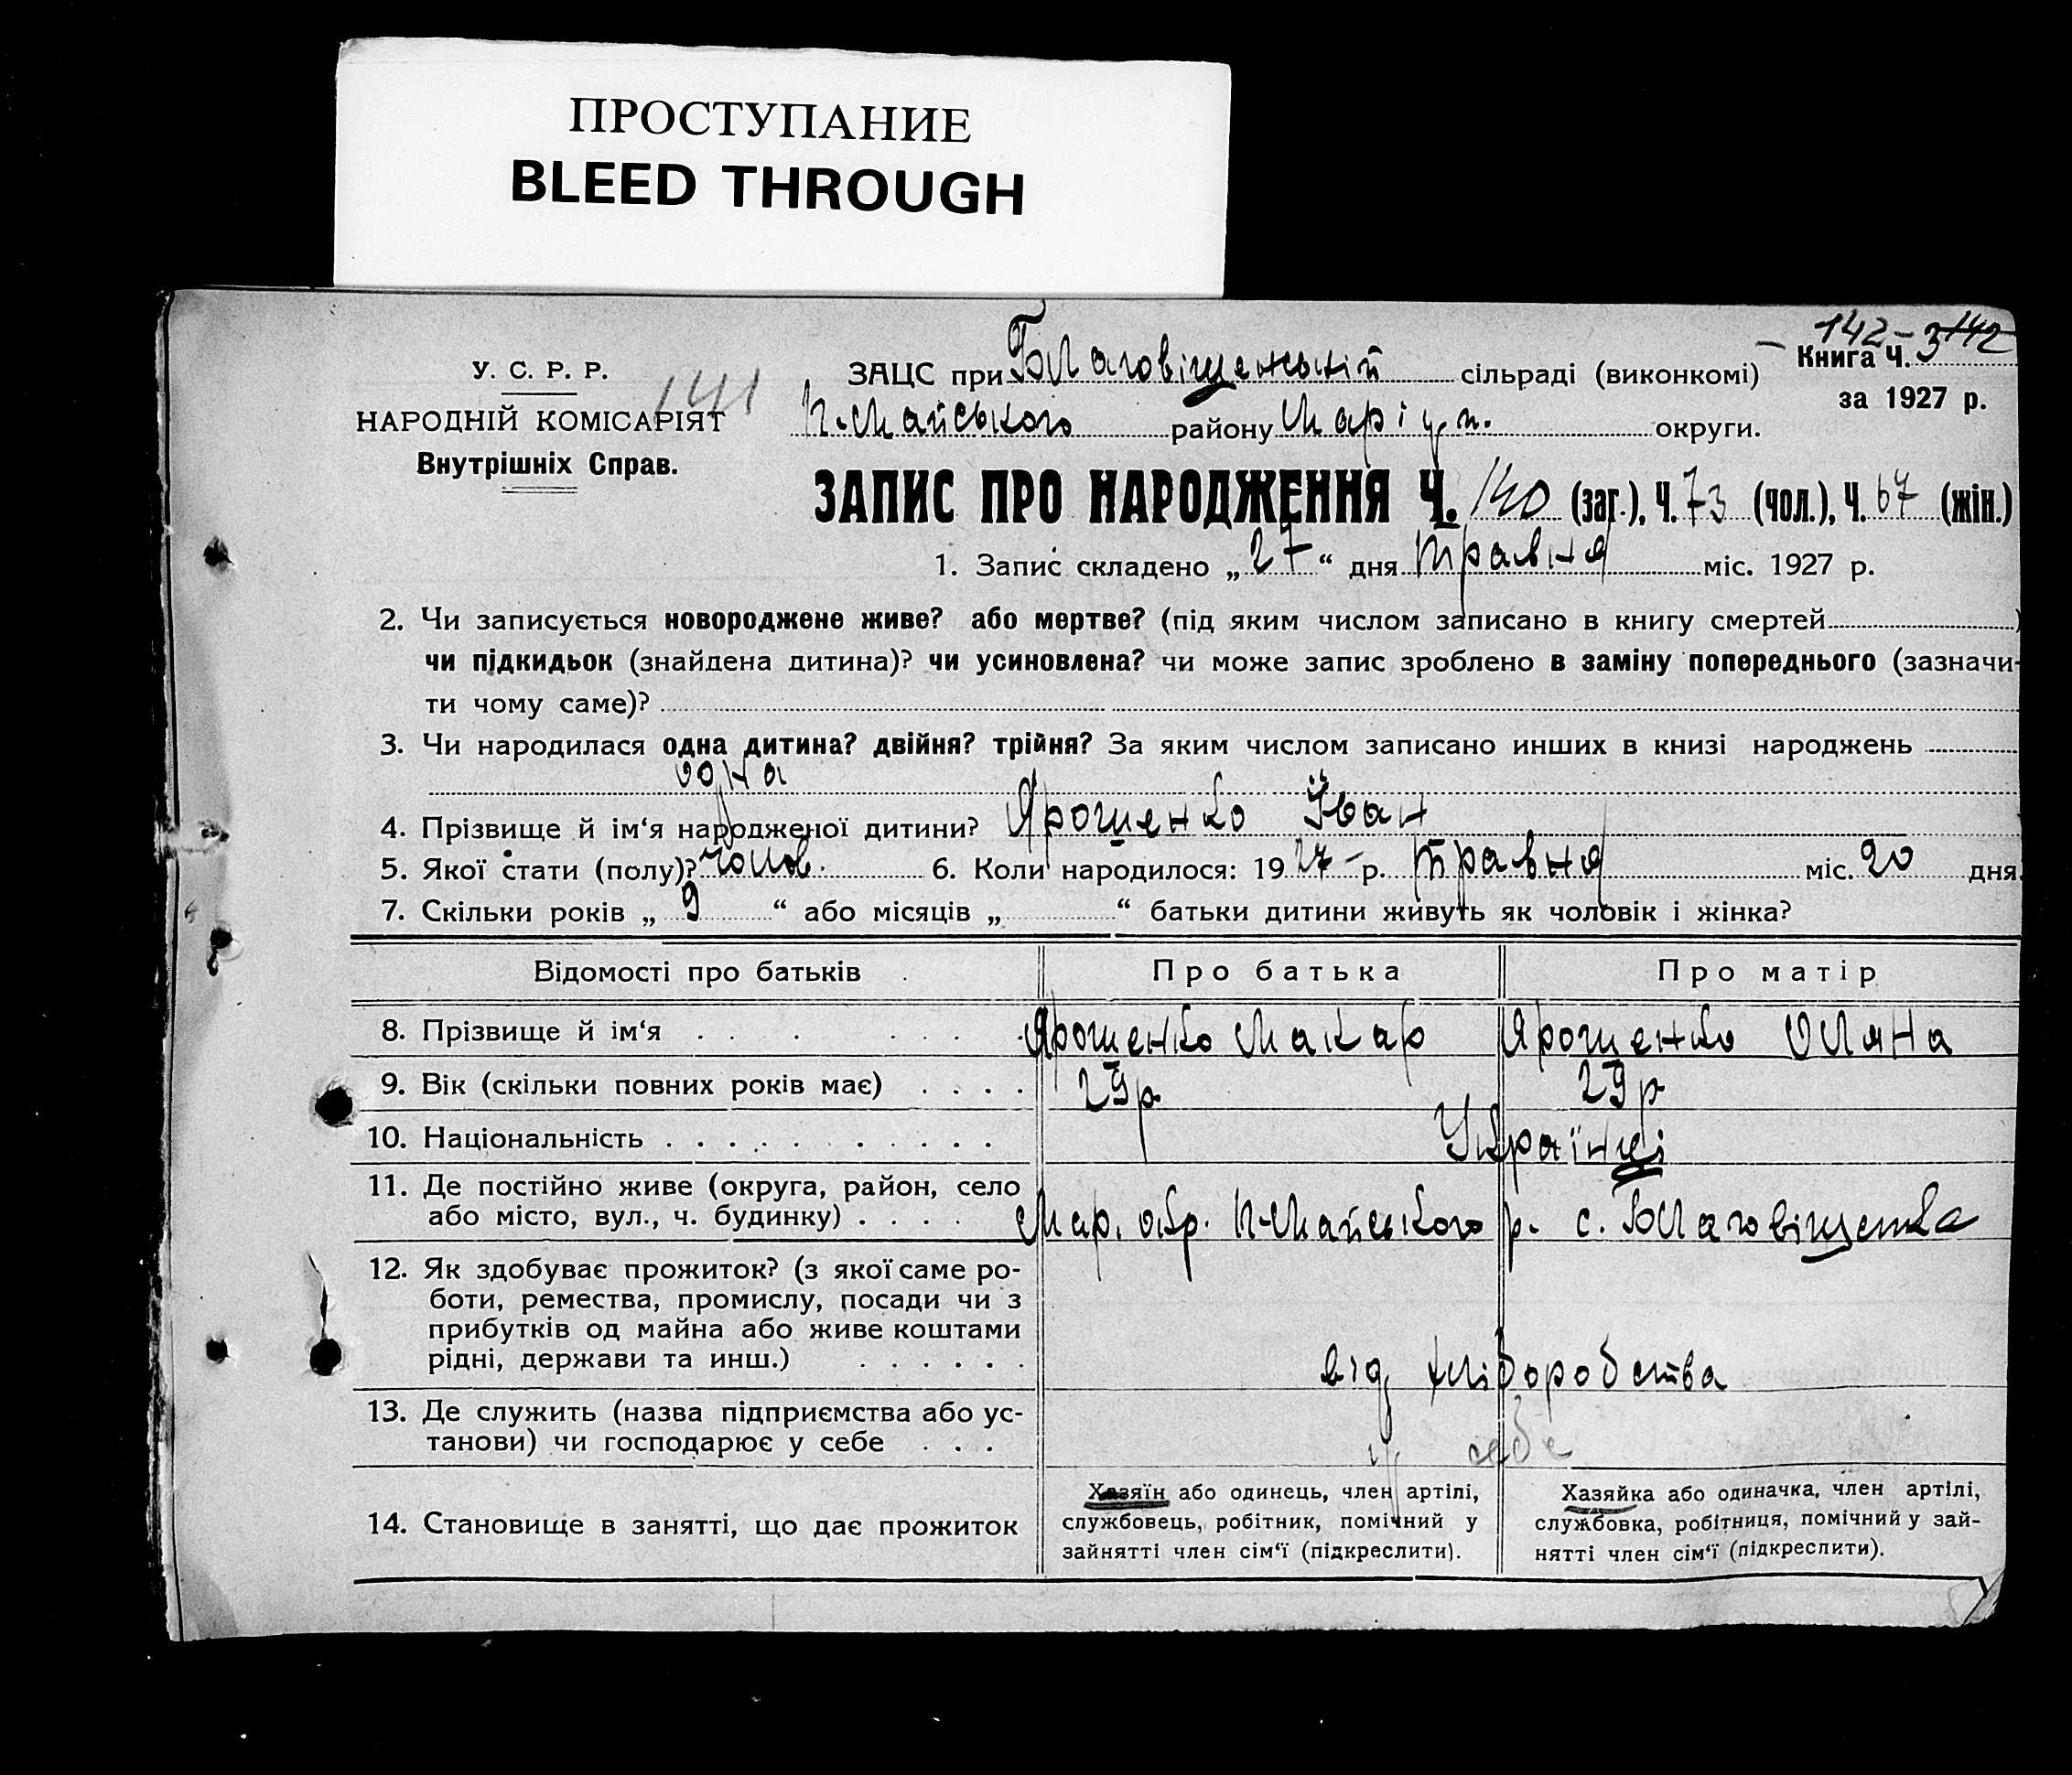 ПРОСТУПАНИЕ
BLEED THROUGH
142 - 3 142
У. С. Р. Р.
ЗАЦС при Благовіщенській сільраді (виконкомі)
Книга Ч.
141
за 1927 р.
НАРОДНІЙ КОМІСАРІЯТ
П-Майського району Маріуп. округи.
Внутрішніх Справ.
ЗАПИС ПРО НАРОДЖЕННЯ Ч. 140 (заг.), Ч. 73 (чол.), Ч. 67 (жін.)
1. Запис складено „ 27 “ дня травня міс. 1927 р.
2. Чи записується новороджене живе? або мертве? (під яким числом записано в книгу смертей )
чи підкидьок (знайдена дитина)? чи усиновлена? чи може запис зроблено в заміну попереднього (зазначи-
ти чому саме)?
3. Чи народилася одна дитина? двійня? трійня? За яким числом записано инших в книзі народжень
одна
4. Прізвище й ім‘я народженої дитини? Ярошенко Іван
5. Якої стати (полу)? чолов. 6. Коли народилося: 19 27 р. травня міс. 20 дня
7. Скільки років „ 9 “ або місяців „ “ батьки дитини живуть як чоловік і жінка?
Відомості про батьків Про батька Про матір
8. Прізвище й ім‘я Ярошенко Макар Ярошенко Оляна
9. Вік (скільки повних років має) 29 р 29 р
10. Національність Українці
11. Де постійно живе (округа, район, село
або місто, вул., ч. будинку) Мар. окр. П-Майського р. с. Благовіщенка
12. Як здобуває прожиток? (з якої саме ро-
боти, ремества, промислу, посади чи з
прибутків од майна або живе коштами
рідні, держави та инш.) від хліборобства
13. Де служить (назва підприємства або ус-
танови) чи господарює у себе у себе
14. Становище в занятті, що дає прожиток
Хазяїн або одинець, член артілі,
службовець, робітник, помічний у
зайнятті член сім‘ї (підкреслити).
Хазяйка або одиначка, член артілі,
службовка, робітниця, помічний у зай-
нятті член сім‘ї (підкреслити).